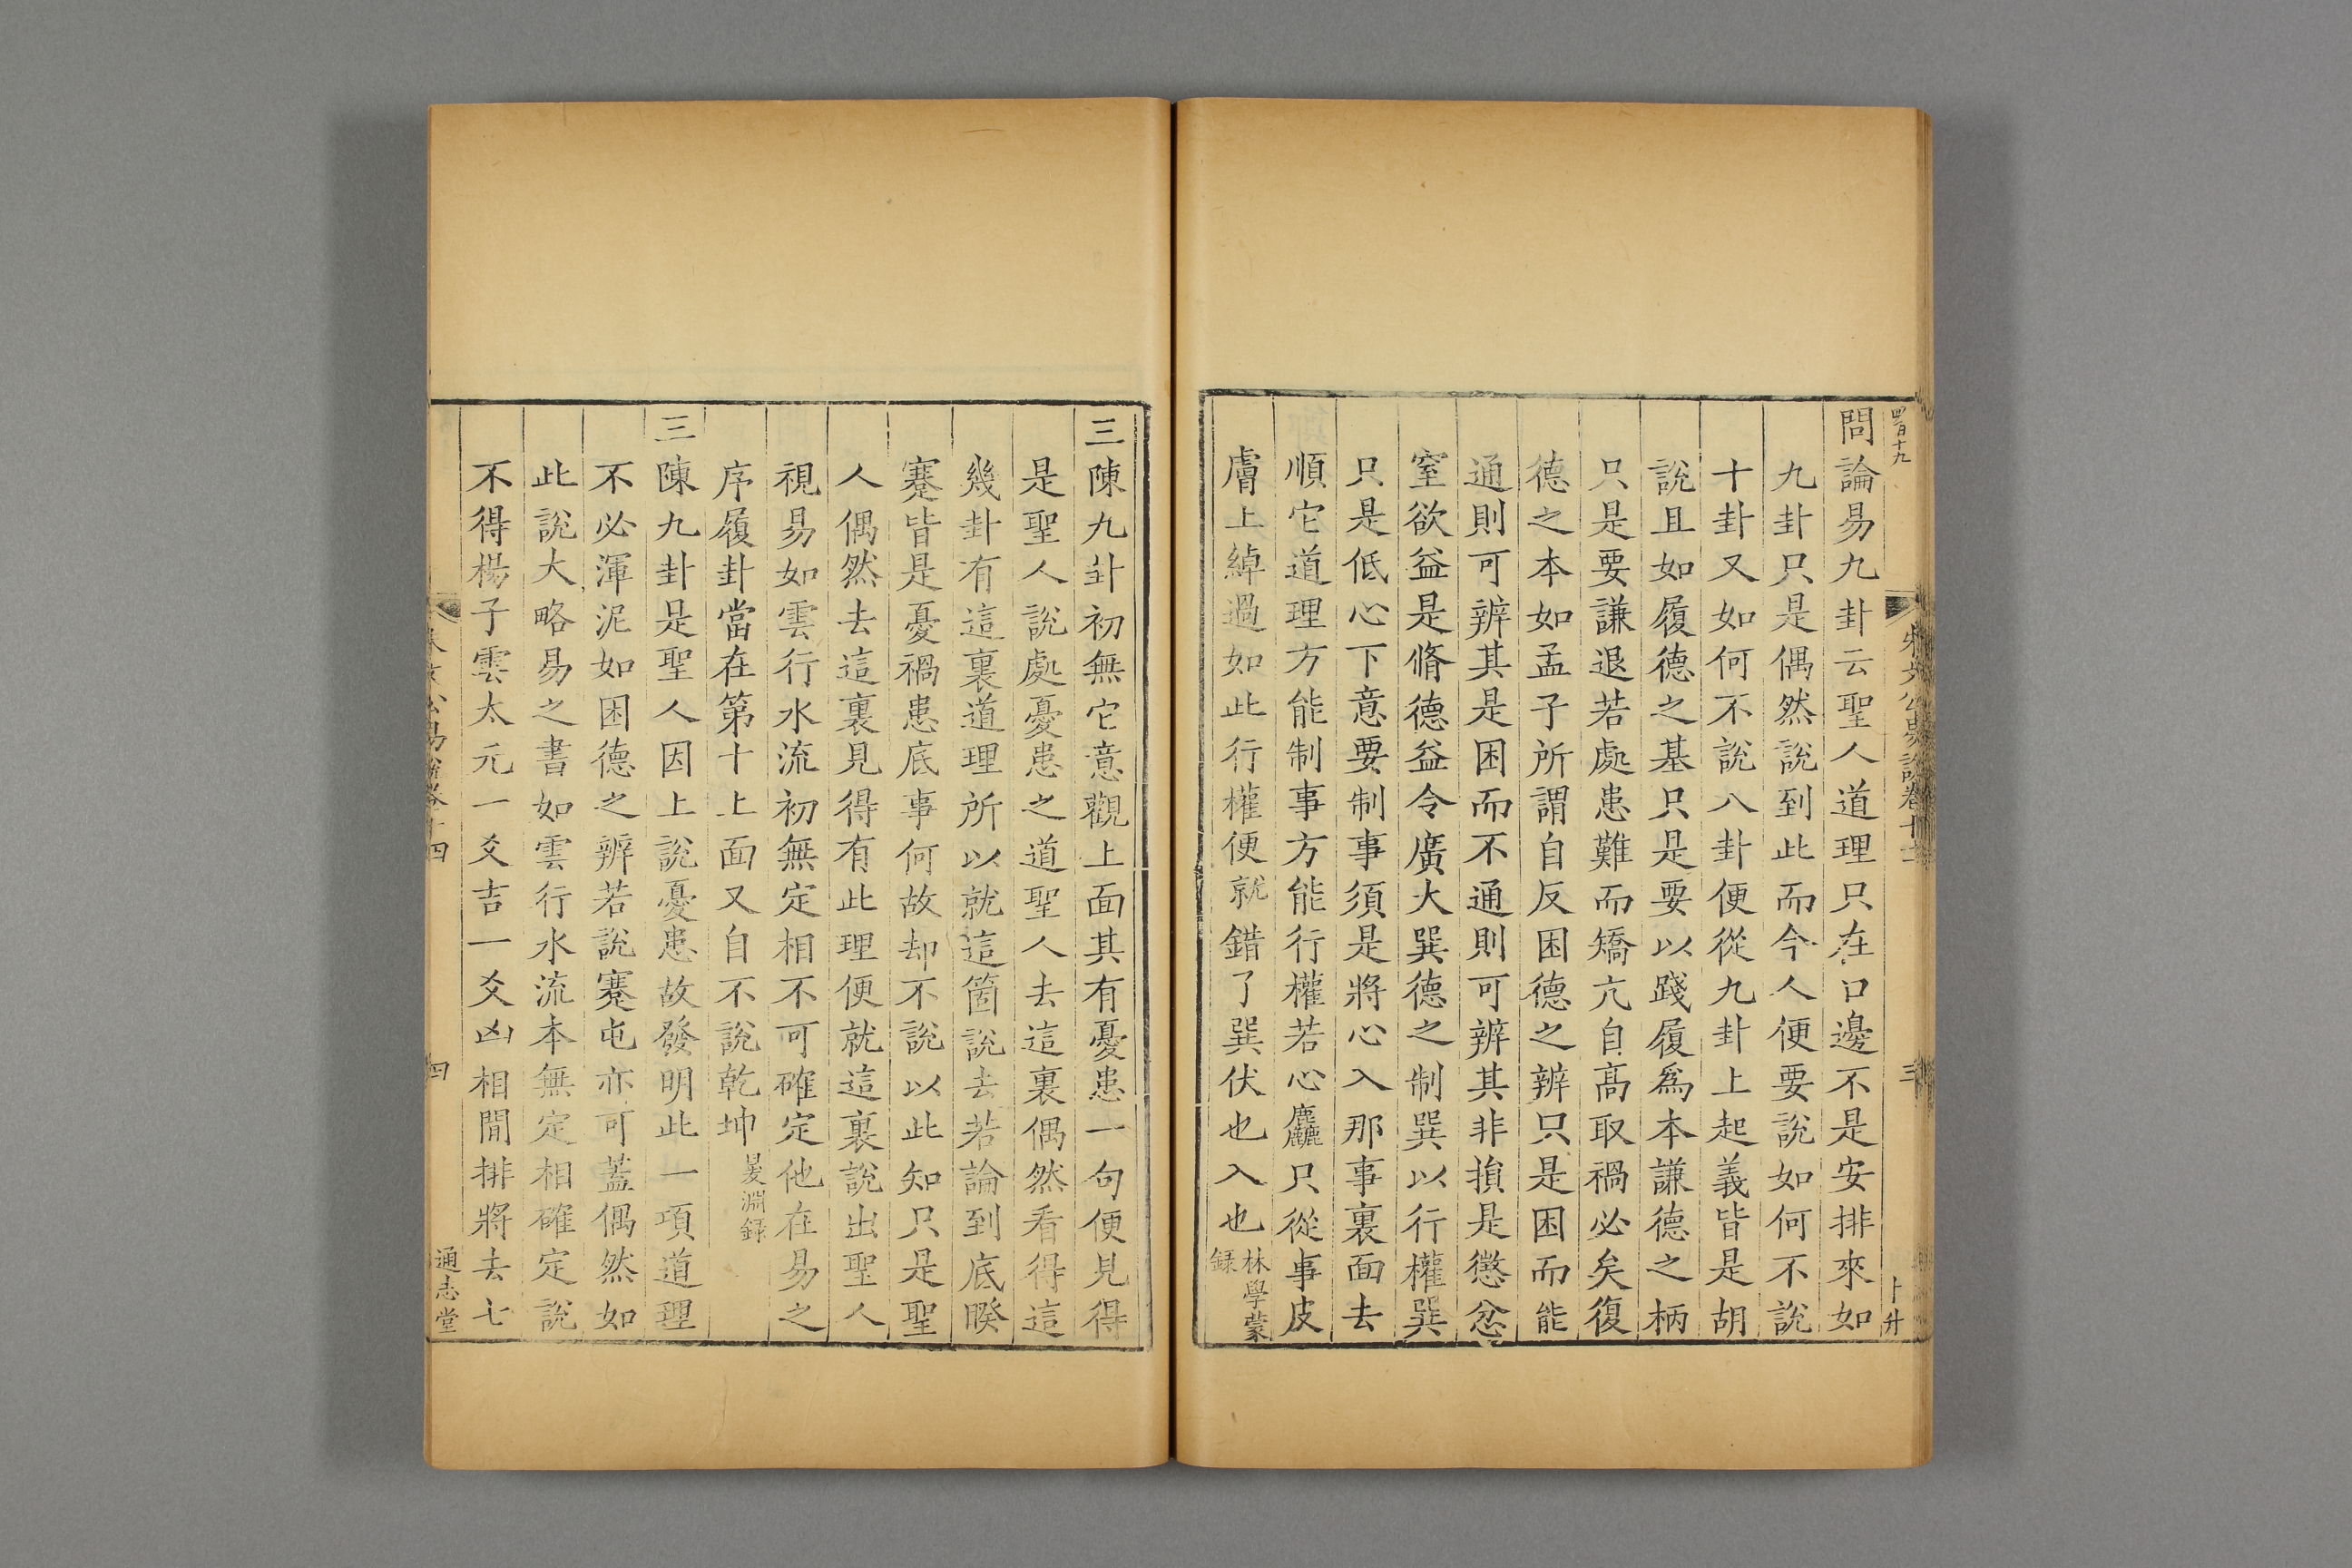 問論易九卦云聖人道理只在口邊不是安排來如
九卦只是偶然說到此而今人便要說如何不說
十卦又如何不說八卦便從九卦上起義皆是胡
說且如履德之基只是要以踐履爲本謙德之柄
只是要謙退若處患難而矯亢自高取禍必矣復
德之本如孟子所謂自反困德之辨只是困而能
通則可辨其是困而不通則可辨其非損是懲忿
窒欲益是脩德益令廣大巽德之制巽以行權巽
只是低心下意要制事須是將心入那事裏面去
順它道理方能制事方能行權若心麤只從事皮
膚上綽過如此行權便就錯了巽伏也入也林學蒙
録
三陳九卦初無它意觀上面其有憂患一句便見得
是聖人說處憂患之道聖人去這裏偶然看得這
幾卦有這裏道理所以就這箇說去若論到底睽
蹇皆是憂禍患底事何故却不說以此知只是聖
人偶然去這裏見得有此理便就這裏說出聖人
視易如雲行水流初無定相不可確定他在易之
序履卦當在第十上面又自不說乾坤㬊淵録
三陳九卦是聖人因上說憂患故發明此一項道理
不必渾泥如困德之辨若說蹇屯亦可蓋偶然如
此說大略易之書如雲行水流本無定相確定說
不得楊子雲太元一爻吉一爻凶相間排將去七
通志堂